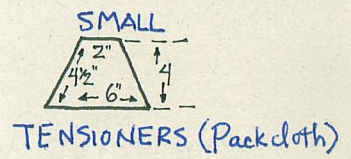 SMALL
2"
4½"
4
6"
TENSIONERS (Packcloth)